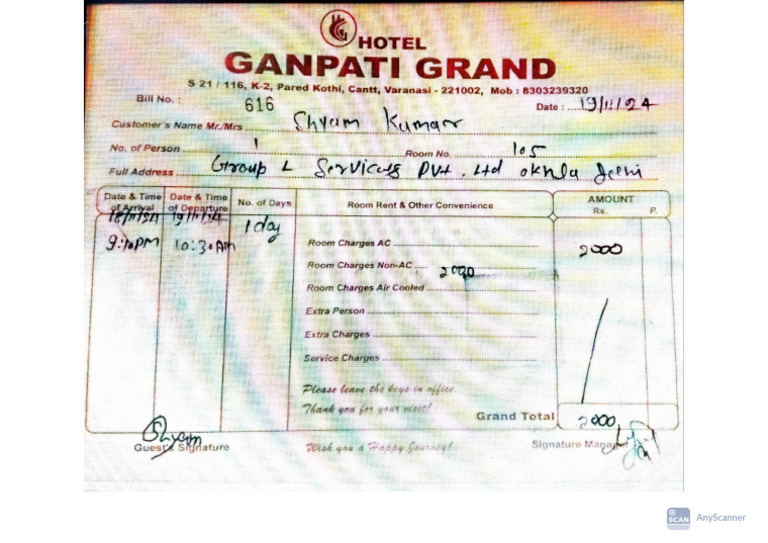 HOTEL
GANPATI GRAND
S 21 / 116, K-2, Pared Kothi, Cantt, Varanasi - 221002, Mob : 8303239320
Bill No. : 616 Date : 19/11/24
Customer's Name Mr./Mrs Shyam Kumar
No. of Person 1 Room No. 105
Full Address Group L Services Pvt. Ltd okhla Delhi
Date & Time of Arrival Date & Time of Departure No. of Days Room Rent & Other Convenience AMOUNT Rs. P.
18/11/24 19/11/24 1 day
9:10PM 10:30AM
Room Charges AC 2000
Room Charges Non-AC 2000
Room Charges Air Cooled
Extra Person
Extra Charges
Service Charges
Please leave the keys in office.
Thank you for your visit!
Grand Total 2000
Shyam
Guest's Signature Wish you a Happy Journey! Signature Manager
SCAN AnyScanner